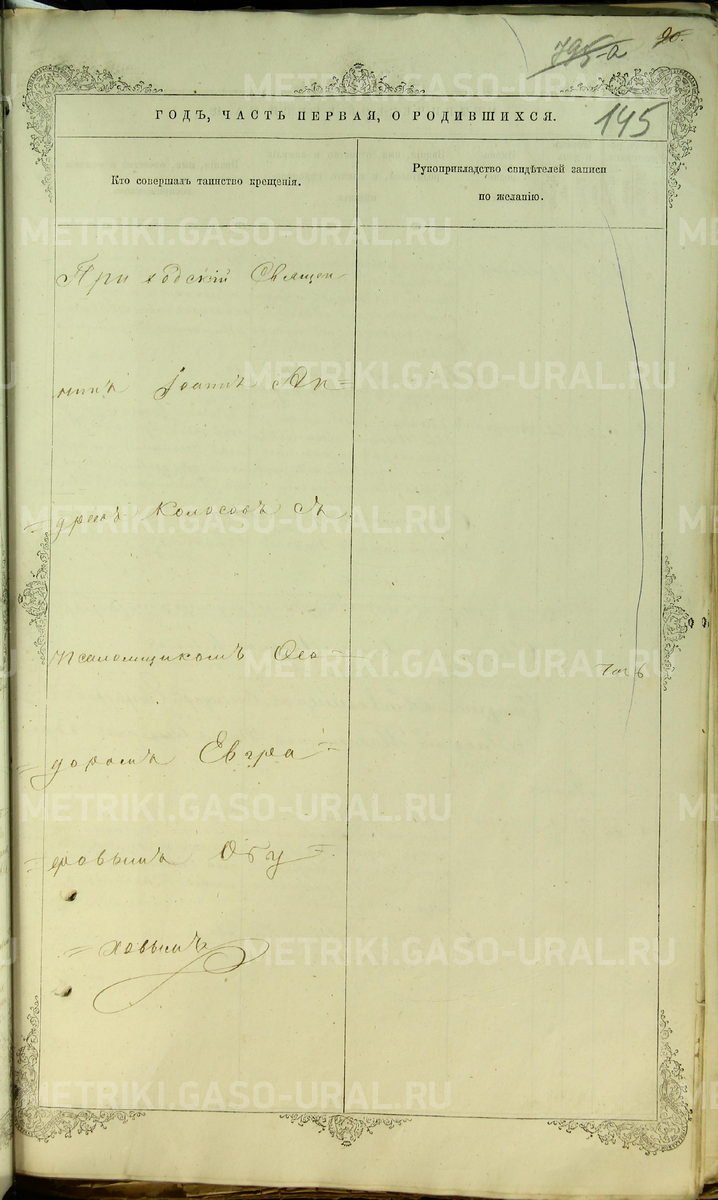 795-а
90.
145
ГОДЪ, ЧАСТЬ ПЕРВАЯ, О РОДИВШИХСЯ.
Кто совершалъ таинство крещенія.
Рукоприкладство свидѣтелей записи
по желанію.
Приходскій Священ-
никъ Іоаннъ Ан=
=дреевъ Колосовъ съ
псаломщикомъ Ѳео=
=доромъ Евгра=
=фовымъ Обу=
=ховымъ
METRIKI.GASO-URAL.RU